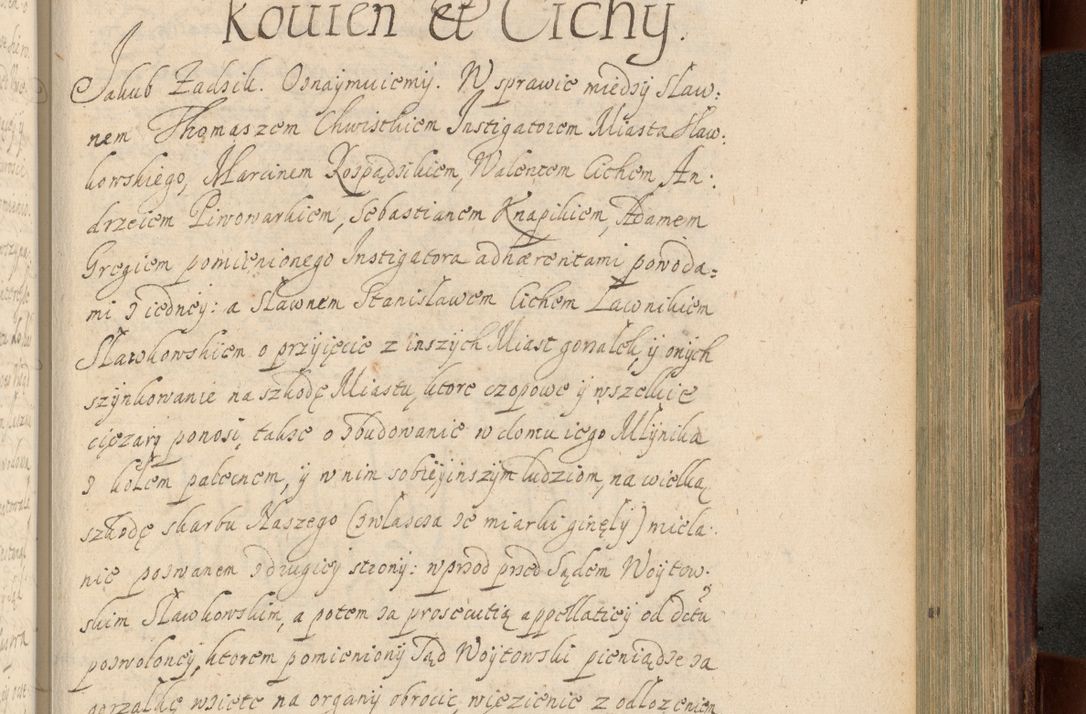 kouien et Cichy.
Jakub Zadzik. Oznaymuiemy. W sprawie miedzy Sław:
nem Thomaszem Chwistkiem Instigatorem Miasta Sław:
kowskiego, Marcinem Rospądzikiem, Walentem Cichem An:
drzeiem Piwowarkiem, Sebastianem Knapikiem, Adamem
Gregiem pomienionego Instigatora adhærentami powoda=
mi z iedney: a Sławnem Stanisławem Cichem Ławnikiem
Sławkowskiem o przyięcie z inszych Miast gorzałek, y onych
szynkowanie na szkodę Miasta, ktore czopowe y wszelkie
ciężary ponosi, takze o zbudowanie w domu iego Młynika
z kołem palecnem, y w nim sobie y inszym ludziom, na wielką
szkodę skarbu Naszego (zwłascza ze miarki ginęły) miela:
nie pozwanem z drugiey strony: w przod przed Sądem Woytow:
skim Sławkowskim, a potem za prosecutią appellatiey od Dctu
pozwoloney, ktorem pomieniony Sąd Woytowski pieniądze za
gorzałkę wzięte na organy obrocic, więzienie z odłozeniem